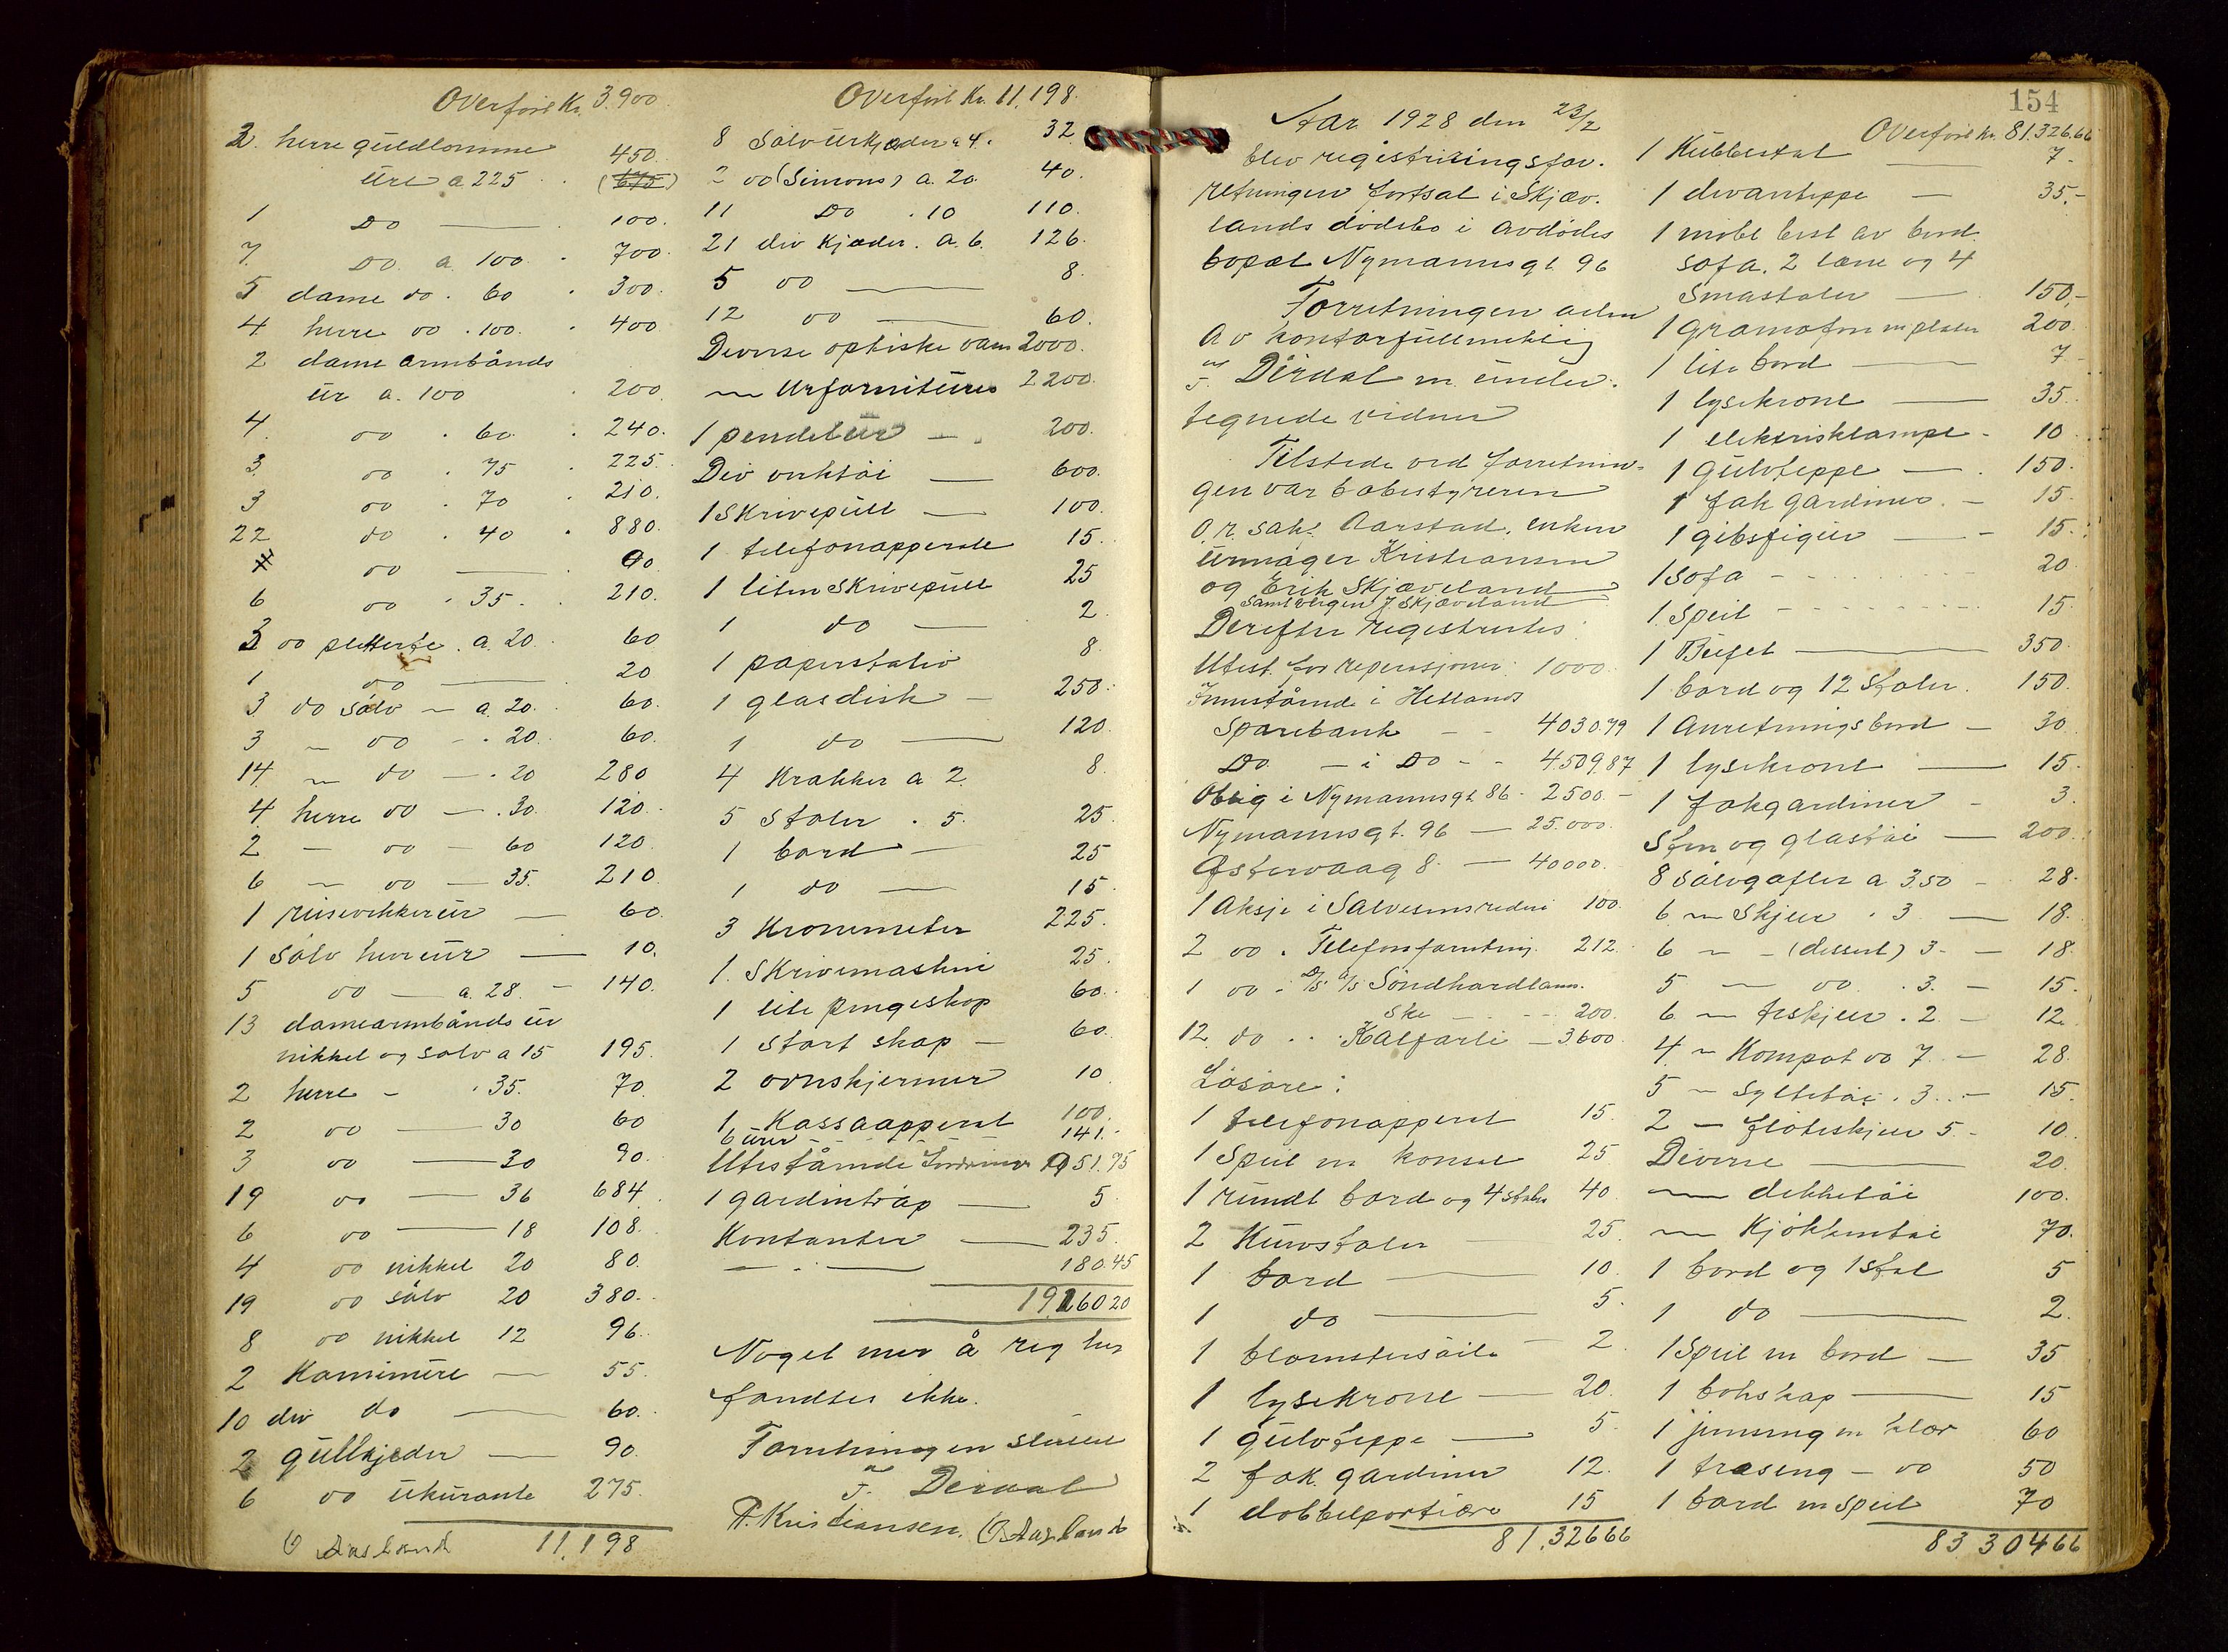 Overført Kr. 3.900
2 herre guldlomme
ure a 225 . 450.
(675)
1 Do — 100.
7 Do. a 100 . 700.
5 dame do . 60 . 300.
4 herre do . 100. . 400
2 dame armbånds
ur a. 100 . 200.
4. do . 60 . 240.
3 do . 75 . 225.
3 do . 70 . 210.
22 do . 40 . 880.
do — 90.
6 do . 35. . 210.
3 do pletterte . a. 20. 60
1 do — 20
3 do sølv — a. 20. 60.
3 — do — . 20. 60.
14 — do — . 20 280
4 herre do — . 30. 120.
2 — do — 60 120.
6 — do — 35. 210.
1 reisevekkerur — 60.
1 sølv herreur — 10.
5 do — a. 28. — 140.
13 damearmbånds ur
nikkel og sølv a 15 195.
2 herre — . 35. 70.
2 do — 30 60
3 do — 30 90.
19 do — 36 684.
6 do — 18 108.
4 do nikkel 20 80.
19 do sølv 20 380.
8 do nikkel 12 96.
2 Kaminure — 55.
10 div do — 60.
2 gullkjeder — 90.
6 do ukurante 275.
O Aasland 11.198
Overført Kr. 11.198.
8 Sølvurkjeder a 4. 32.
2 do (Simons) a. 20. 40.
11 Do . 10 110.
21 div Kjeder. a. 6. 126.
5 do — 8.
12 do — 60.
Diverse optiske varer 2000.
— Urfornitures 2200.
1 pendelur — . 200.
Div verktøi — 600.
1 Skrivepult — 100.
1 telefonapperate 15.
1 liten Skrivepult 25
1 do — 2.
1 papirstativ 8.
1 glasdisk — 250.
1 do — 120.
4 Krakker a 2. 8.
5 Stoler . 5. 25.
1 bord — 25
1 do — 15.
3 Kronometer 225.
1. Skrivemaskine 25.
1 lite pengeskap 60.
1 Stort skap — 60.
2 ovnskjermer 10
1 Kassaapperat 100.
6 urer — 141.
Utestående Fordringer 951.75
1 gardintrap — 5.
Kontanter — 235.
— . — 180.45
19.260 20
Noget mer å reg her
fandtes ikke.
Forretningen sluttet
J. Dirdal
P. Kristiansen. O Aasland
154
Aar 1928 den 23/2
blev registreringsfor-
retningen fortsat i Skjæv-
lands dødsbo i avdødes
bopæl Nymannsgt. 96
Forretningen adm
av kontorfullmektig
J. Dirdal m under-
tegnede vidner
Tilstede ved forretnin-
gen var bobestyreren
O.r. sakf. Aarstad, enken
Urmager Kristiansen
og Erik Skjæveland
samt vergen J Skjæveland
Derefter registrertes:
Utest. for reperasjoner: 1000.
Innestående i Hetlands
Sparebank — — 4030.79
Do — i Do — - 4509.87
Oblig i Nymannsgt. 86 - 2500.-
Nymannsgt. 96 — 25.000.
Østervaag 8. — 40000.
1 Aksje i Salvesensrederi 100.
2 do . Telefonforretning. 212.
1 do . D/S A/S Söndhordlann-
ske — - - 200.
12 do . . Kalfarli — 3600.
Løsøre:
1 telefonapperat 15.
1 Speil m konsol 25
1 rundt bord og 4 stoler 40.
2 Kurvstoler — 25.
1 bord — 10.
1 do — 5.
1 blomstersøile — 2.
1 lysekrone — 20.
1 gulvteppe — 5.
2 fak. gardiner 12.
1 dobbelportiere 15
81.326 66
Overført Kr. 81.326.66
1 Kubbestol — 7.-
1 divanteppe — 35.-
1 møbl best av bord
sofa. 2 lene og 4
Smastoler — 150.-
1 gramofon m plater 200.
1 lite bord — 7.-
1 lysekrone — 35.
1 elektrisklampe - 10.
1 Gulvteppe — . 150.
1 fak gardiner. — 15.
1 gibsfigur — - 15.
1 Sofa - - - 20
1. Speil - - - 15.
1 Bufet — 350.
1 bord og 12 Stoler. 150.
1 Anretningsbord — 30.
1 lysekrone — 15.
1 fakgardiner - 3.
Sten og glastøi — 200.
8 sølvgafler a 3.50 - 28.
6 — Skjeer . 3 — 18.
6 — - (dessert) 3 - - 18.
5 — do . 3. — 15.
6 — teskjeer . 2 — 12.
4 — Kompot do 7. — 28.
5 — Syltetøi . 3.. — 15.
2 — fløteskjeer 5. - 10.
Diverse — 20.
— dekketøi 100.
— Kjøkkentøi 70.
1 bord og 1 stol 5
1 do — 2.
1 Speil m bord — 35
1 bokskap — 15
1 jernseng m klær 60
1 træseng — do 50
1 bord m speil 70
83 304 66